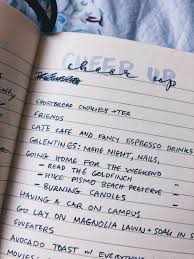 CHEER UP
cheer up
SHORTBREAD COOKIES + TEA
FRIENDS
CATE CAFE AND FANCY ESPRESSO DRINKS
GALENTINES: MOVIE NIGHT, NAILS,
GOING HOME FOR THE WEEKEND
- READ THE GOLDFINCH
- HIKE PISMO BEACH PRESERVE
- BURNING CANDLES
HAVING A CAR ON CAMPUS
GO LAY ON MAGNOLIA LAWN + SOAK IN S
SWEATERS
AVOCADO TOAST w/ EVERYTHING
MOVIES: